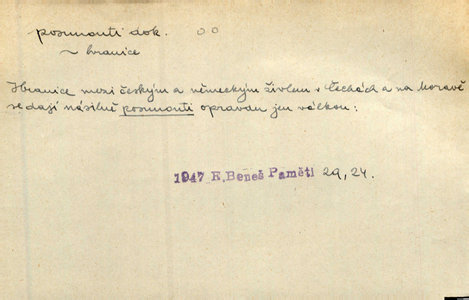 posunouti dok. oo
~ hranice
Hranice mezi českým a německým živlem v Čechách a na Moravě
se dají násilně posunouti opravdu jen válkou:
1947 E. Beneš Paměti 29, 24.